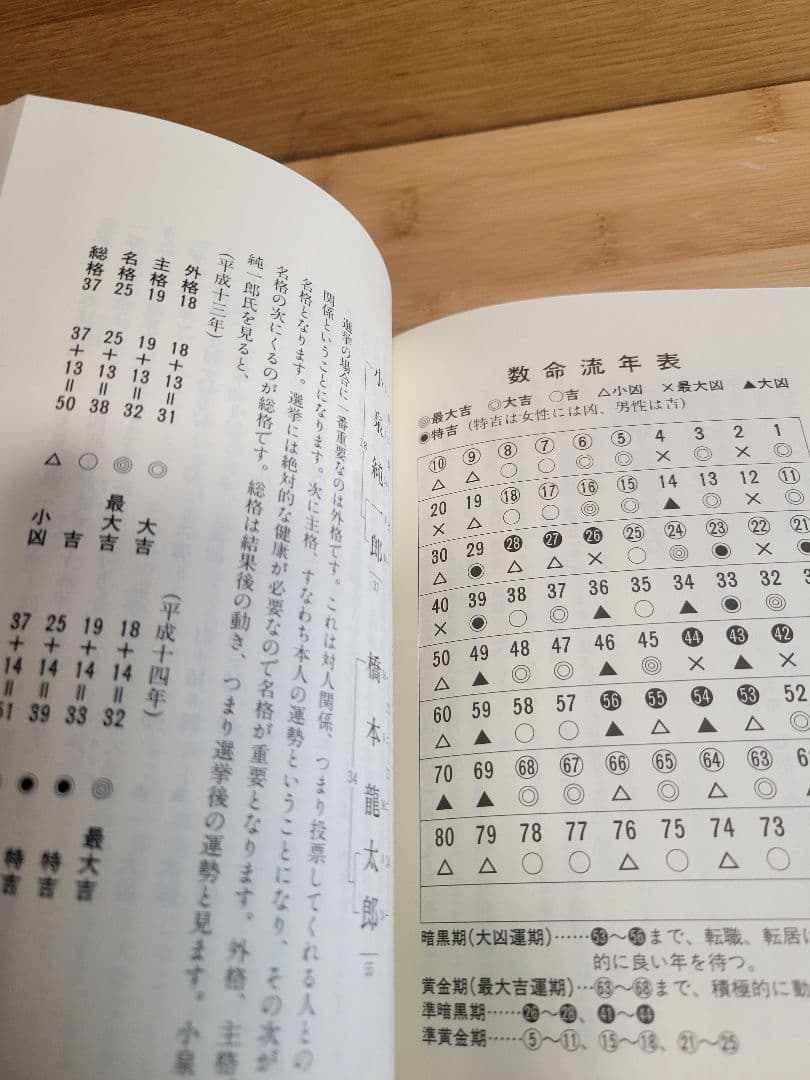 数命流年表
◎最大吉 ◎大吉 ○吉 △小凶 ×最大凶 ▲大凶
◉特吉(特吉は女性には凶、男性は吉)
⑩ ⑨ ⑧ ⑦ ⑥ ⑤ 4 3 2 1
△ △ ○ ○ ◎ ◎ × ◎ × ◎
20 19 ⑱ ⑰ ⑯ ⑮ 14 13 12 ⑪
× △ ○ ○ ◎ ◎ ▲ ◎ × ◎
30 29 28 27 26 ㉕ ㉔ ㉓ ㉒ ㉑
△ ◉ △ △ × ○ ◎ ◉ × ◉
40 39 38 37 36 35 34 33 32
× ◉ ○ ◎ ▲ ○ ▲ ◉ ◎
50 49 48 47 46 45 44 43 42
△ ▲ ◎ ◎ ▲ ◎ × ▲ ×
60 59 58 57 56 55 54 53 52
△ ▲ ○ ○ ▲ △ ▲ △ ◎
70 69 68 67 66 65 64 63
▲ ▲ ◎ ◎ △ ◎ △ ◎
80 79 78 77 76 75 74 73
△ △ ○ ○ △ ○ △ ○
暗黒期(大凶運期)……53〜56まで、転職、転居に
的に良い年を待つ。
黄金期(最大吉運期)…63〜68まで、積極的に動
準暗黒期……26〜28、41〜44
準黄金期……⑤〜⑪、⑮〜⑱、㉑〜㉕
橋本龍太郎
34
55
小泉純一郎
28
37
選挙の場合に一番重要なのは外格です。これは対人関係、つまり投票してくれる人との
関係ということになります。次に主格、すなわち本人の運勢ということになり、その次が
名格となります。選挙には絶対的な健康が必要なので名格が重要となります。外格、主格、
名格の次にくるのが総格です。総格は結果後の動き、つまり選挙後の運勢と見ます。小泉
純一郎氏を見ると、
(平成十三年)
外格18 18+13=31 ◎ 大吉
主格19 19+13=32 ◎ 最大吉
名格25 25+13=38 ○ 吉
総格37 37+13=50 △ 小凶
(平成十四年)
18+14=32 ◎ 最大吉
19+14=33 ◉ 特吉
25+14=39 ◉ 特吉
37+14=51